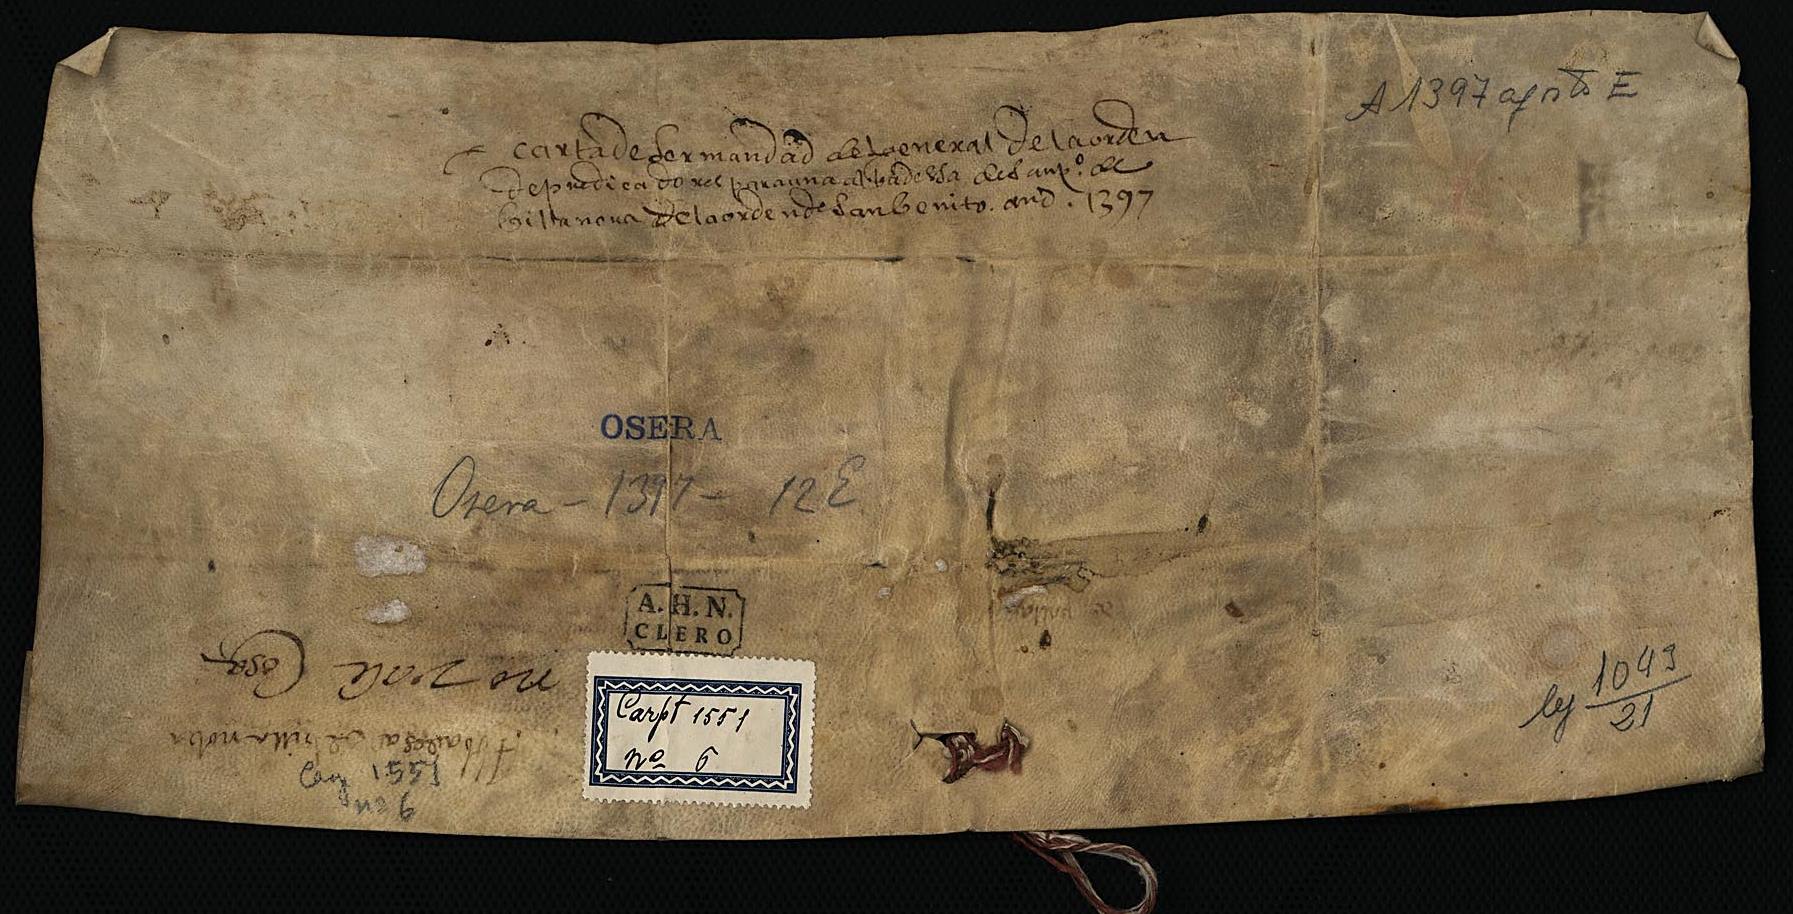 A 1397 agosto E
carta de hermandad del general de la orden
de predicadores para una abbadessa de
billanova de la orden de san benito. año. 1397
OSERA
Osera - 1397 - 12 E
A. H. N.
CLERO
no vale Cosa
Abbadesa de villa nova
Carpt 1551
nº 6
Carp 1551
nº 6
leg 1043
21